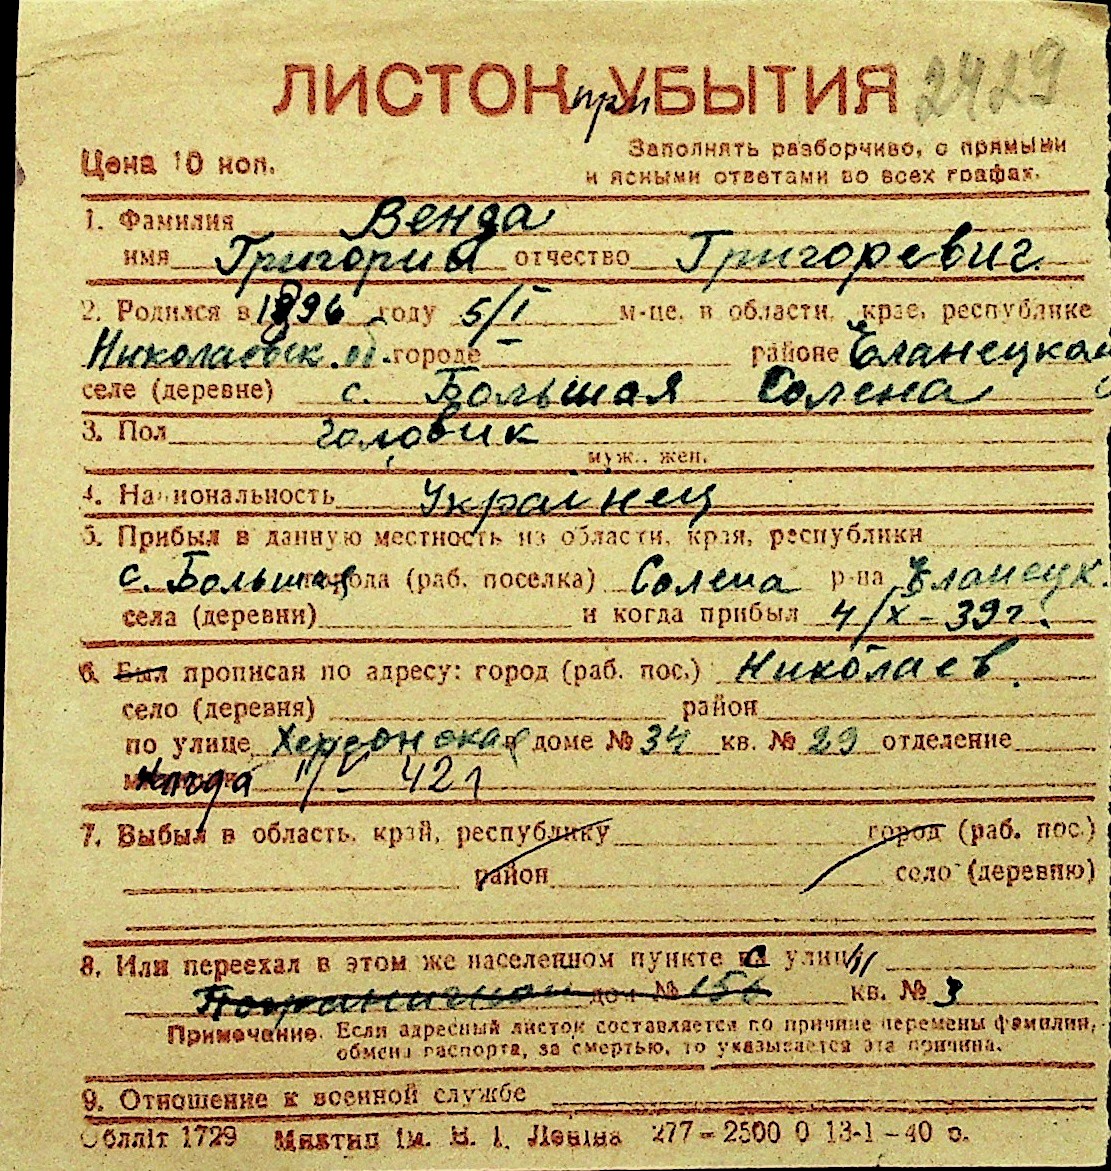 ЛИСТОК при УБЫТИЯ 2429
Цена 10 коп.
Заполнять разборчиво, с прямыми
и ясными ответами во всех графах.
1. Фамилия Венда
имя Григорий отчество Григоревич
2. Родился в 1896 году 5/I м-це, в области, крае, республике
Николаевск. об. городе — районе Еланецкой
селе (деревне) с. Большая Солена
3. Пол головик
муж., жен.
4. Национальность Украинец
5. Прибыл в данную местность из области, края, республики
с. Большая города (раб. поселка) Солена р-на Еланецк.
села (деревни) и когда прибыл 4/X – 39 г.
6. Был прописан по адресу: город (раб. пос.) Николаев.
село (деревня) район
по улице Херсонская в доме № 34 кв. № 29 отделение
когда 11/V – 421
7. Выбыл в область, край, республику город (раб. пос.)
район село (деревню)
8. Или переехал в этом же населенном пункте с улицы
Пограничной дом № 156 кв. № 3
Примечание. Если адресный листок составляется по причине перемены фамилии,
обмена паспорта, за смертью, то указывается эта причина.
9. Отношение к военной службе
Обллiт 1729 Миктип iм. В. I. Ленiна 277 – 2500 0 13-1 – 40 р.